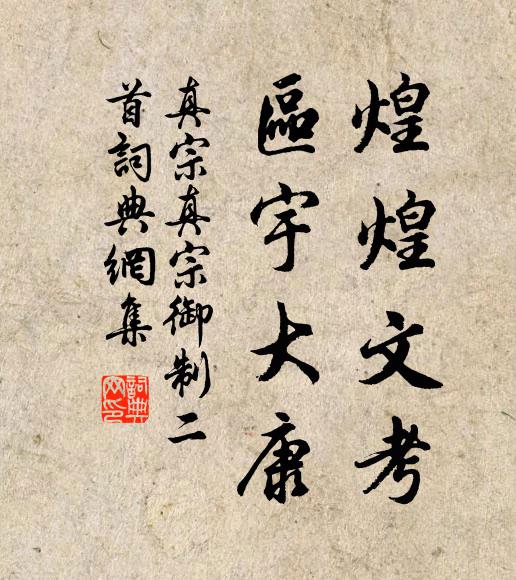 煌煌文考
區宇大康
真宗真宗御制二
首詞典網集
詞典
网印